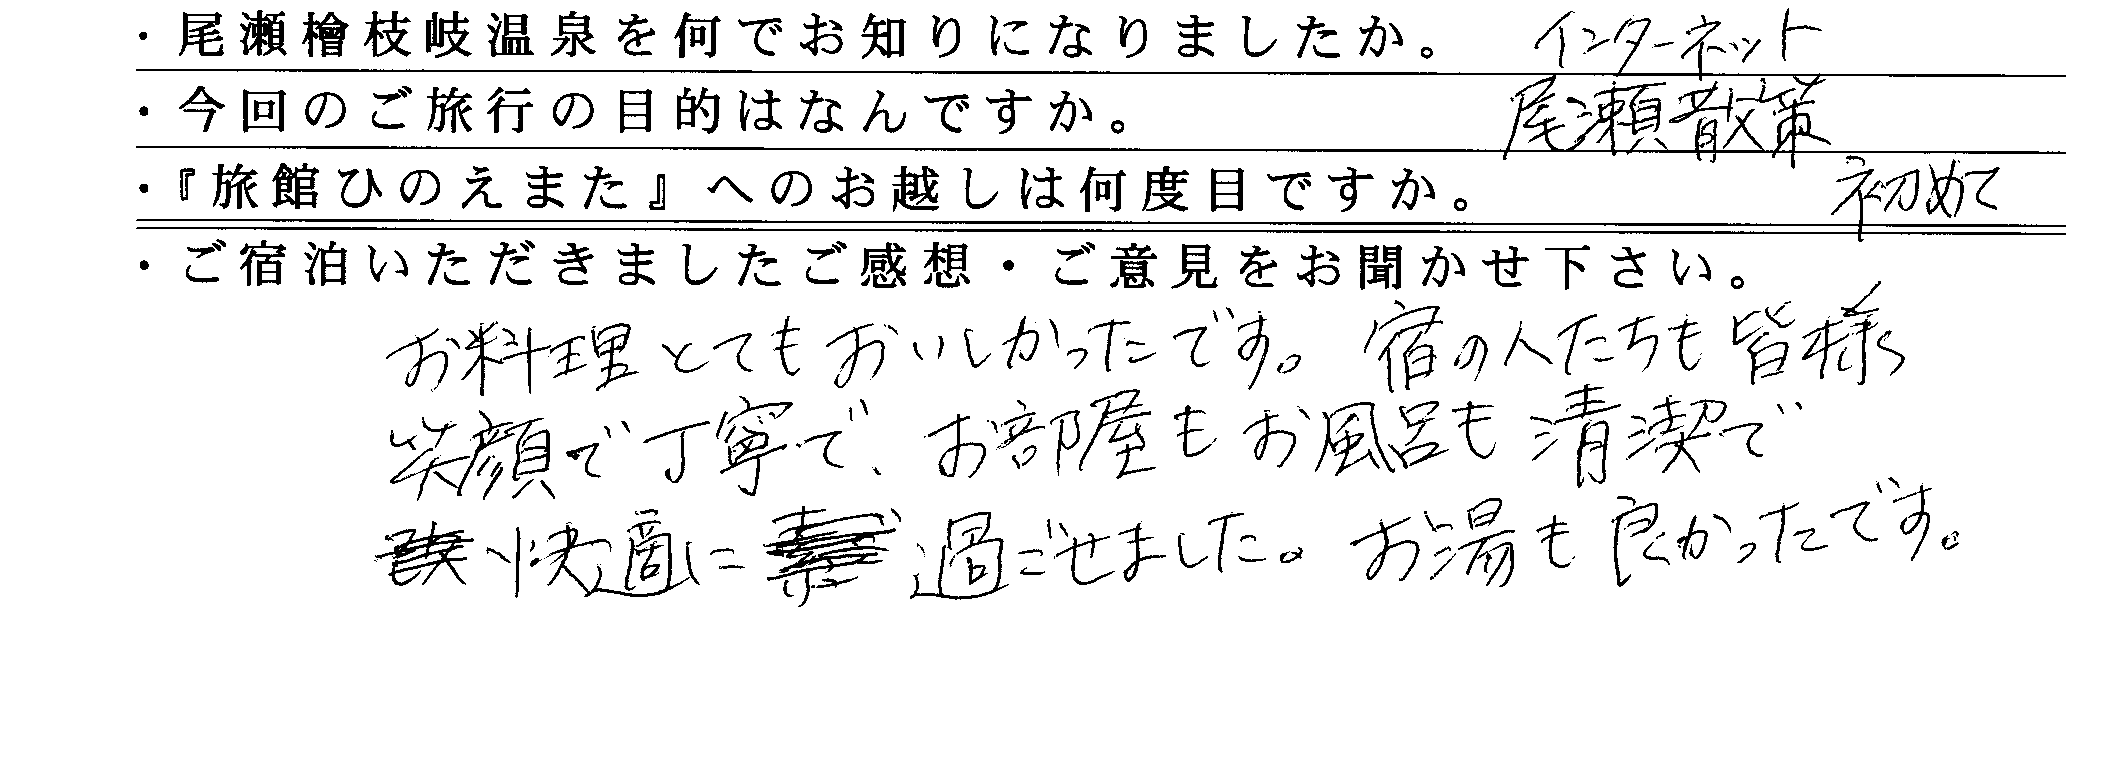 ・尾瀬檜枝岐温泉を何でお知りになりましたか。 インターネット
・今回のご旅行の目的はなんですか。 尾瀬散策
・『旅館ひのえまた』へのお越しは何度目ですか。 初めて
・ご宿泊いただきましたご感想・ご意見をお聞かせ下さい。
お料理とてもおいしかったです。宿の人たちも皆様
笑顔で丁寧で、お部屋もお風呂も清潔で
快適に過ごせました。お湯も良かったです。